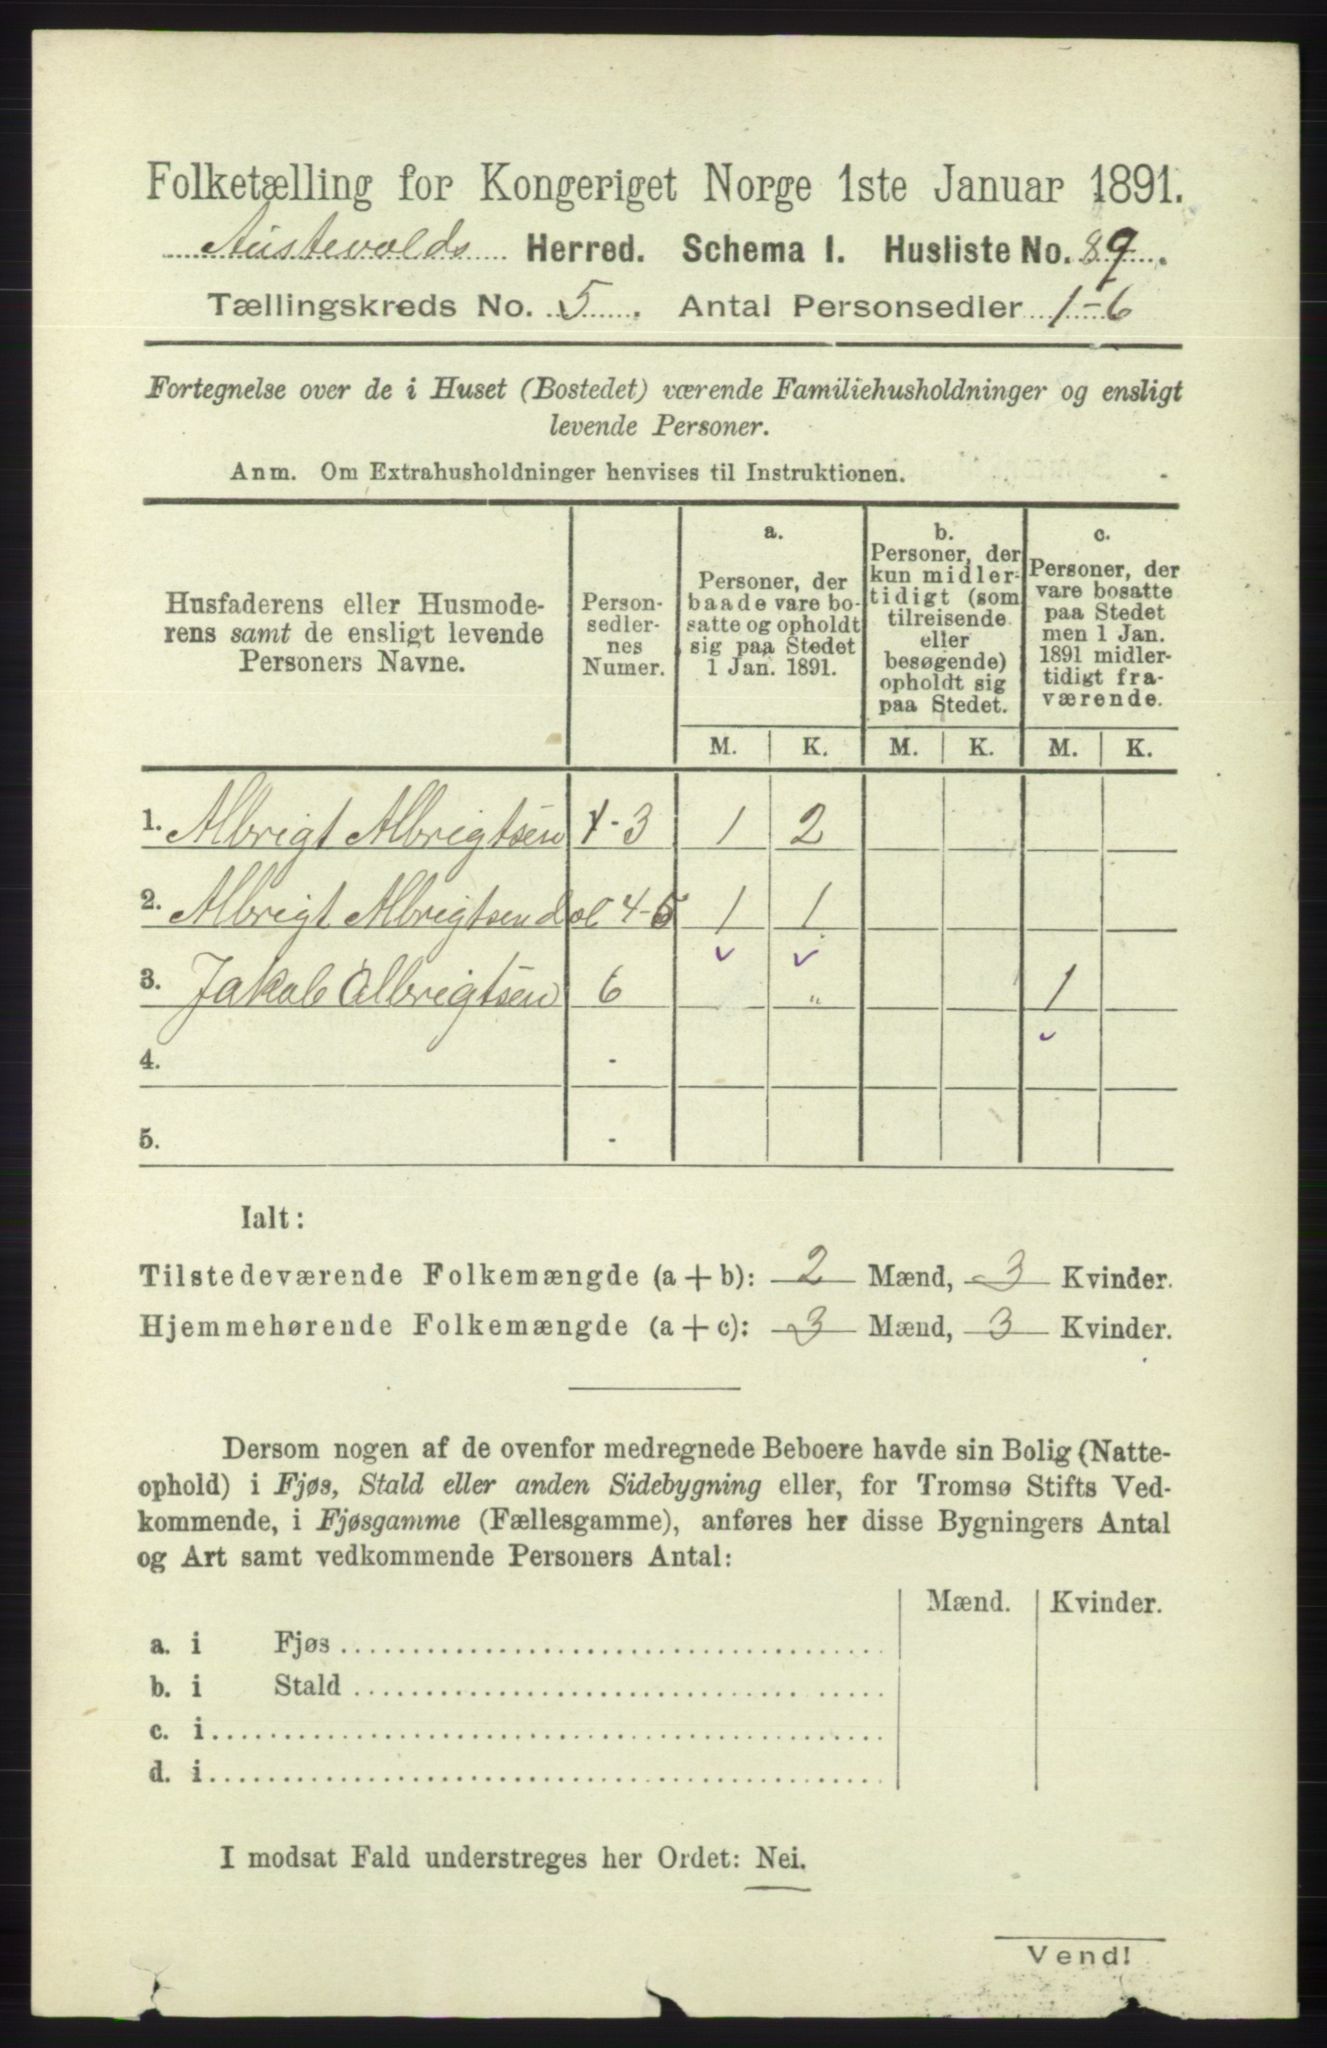 Folketælling for Kongeriget Norge 1ste Januar 1891.
Austevolds Herred. Schema I. Husliste No. 89.
Tællingskreds No. 5. Antal Personsedler 1-6
Fortegnelse over de i Huset (Bostedet) værende Familiehusholdninger og ensligt
levende Personer.
Anm. Om Extrahusholdninger henvises til Instruktionen.
Husfaderens eller Husmode-
rens samt de ensligt levende
Personers Navne.
Person-
sedler-
nes
Numer.
a.
Personer, der
baade vare bo-
satte og opholdt
sig paa Stedet
1 Jan. 1891.
b.
Personer, der
kun midler-
tidigt (som
tilreisende
eller
besøgende)
opholdt sig
paa Stedet.
c.
Personer, der
vare bosatte
paa Stedet
men 1 Jan.
1891 midler-
tidigt fra-
værende.
M. K. M. K. M. K.
1. Albrigt Albrigtsen 1-3 1 2
2. Albrigt Albrigtsen d æl 4-5 1 1
3. Jakob Albrigtsen 6 „ 1
4. -
5. -
Ialt:
Tilstedeværende Folkemængde (a + b): 2 Mænd, 3 Kvinder.
Hjemmehørende Folkemængde (a + c): 3 Mænd, 3 Kvinder.
Dersom nogen af de ovenfor medregnede Beboere havde sin Bolig (Natte-
ophold) i Fjøs, Stald eller anden Sidebygning eller, for Tromsø Stifts Ved-
kommende, i Fjøsgamme (Fællesgamme), anføres her disse Bygningers Antal
og Art samt vedkommende Personers Antal:
Mænd. Kvinder.
a. i Fjøs
b. i Stald
c. i
d. i
I modsat Fald understreges her Ordet: Nei.
Vend!